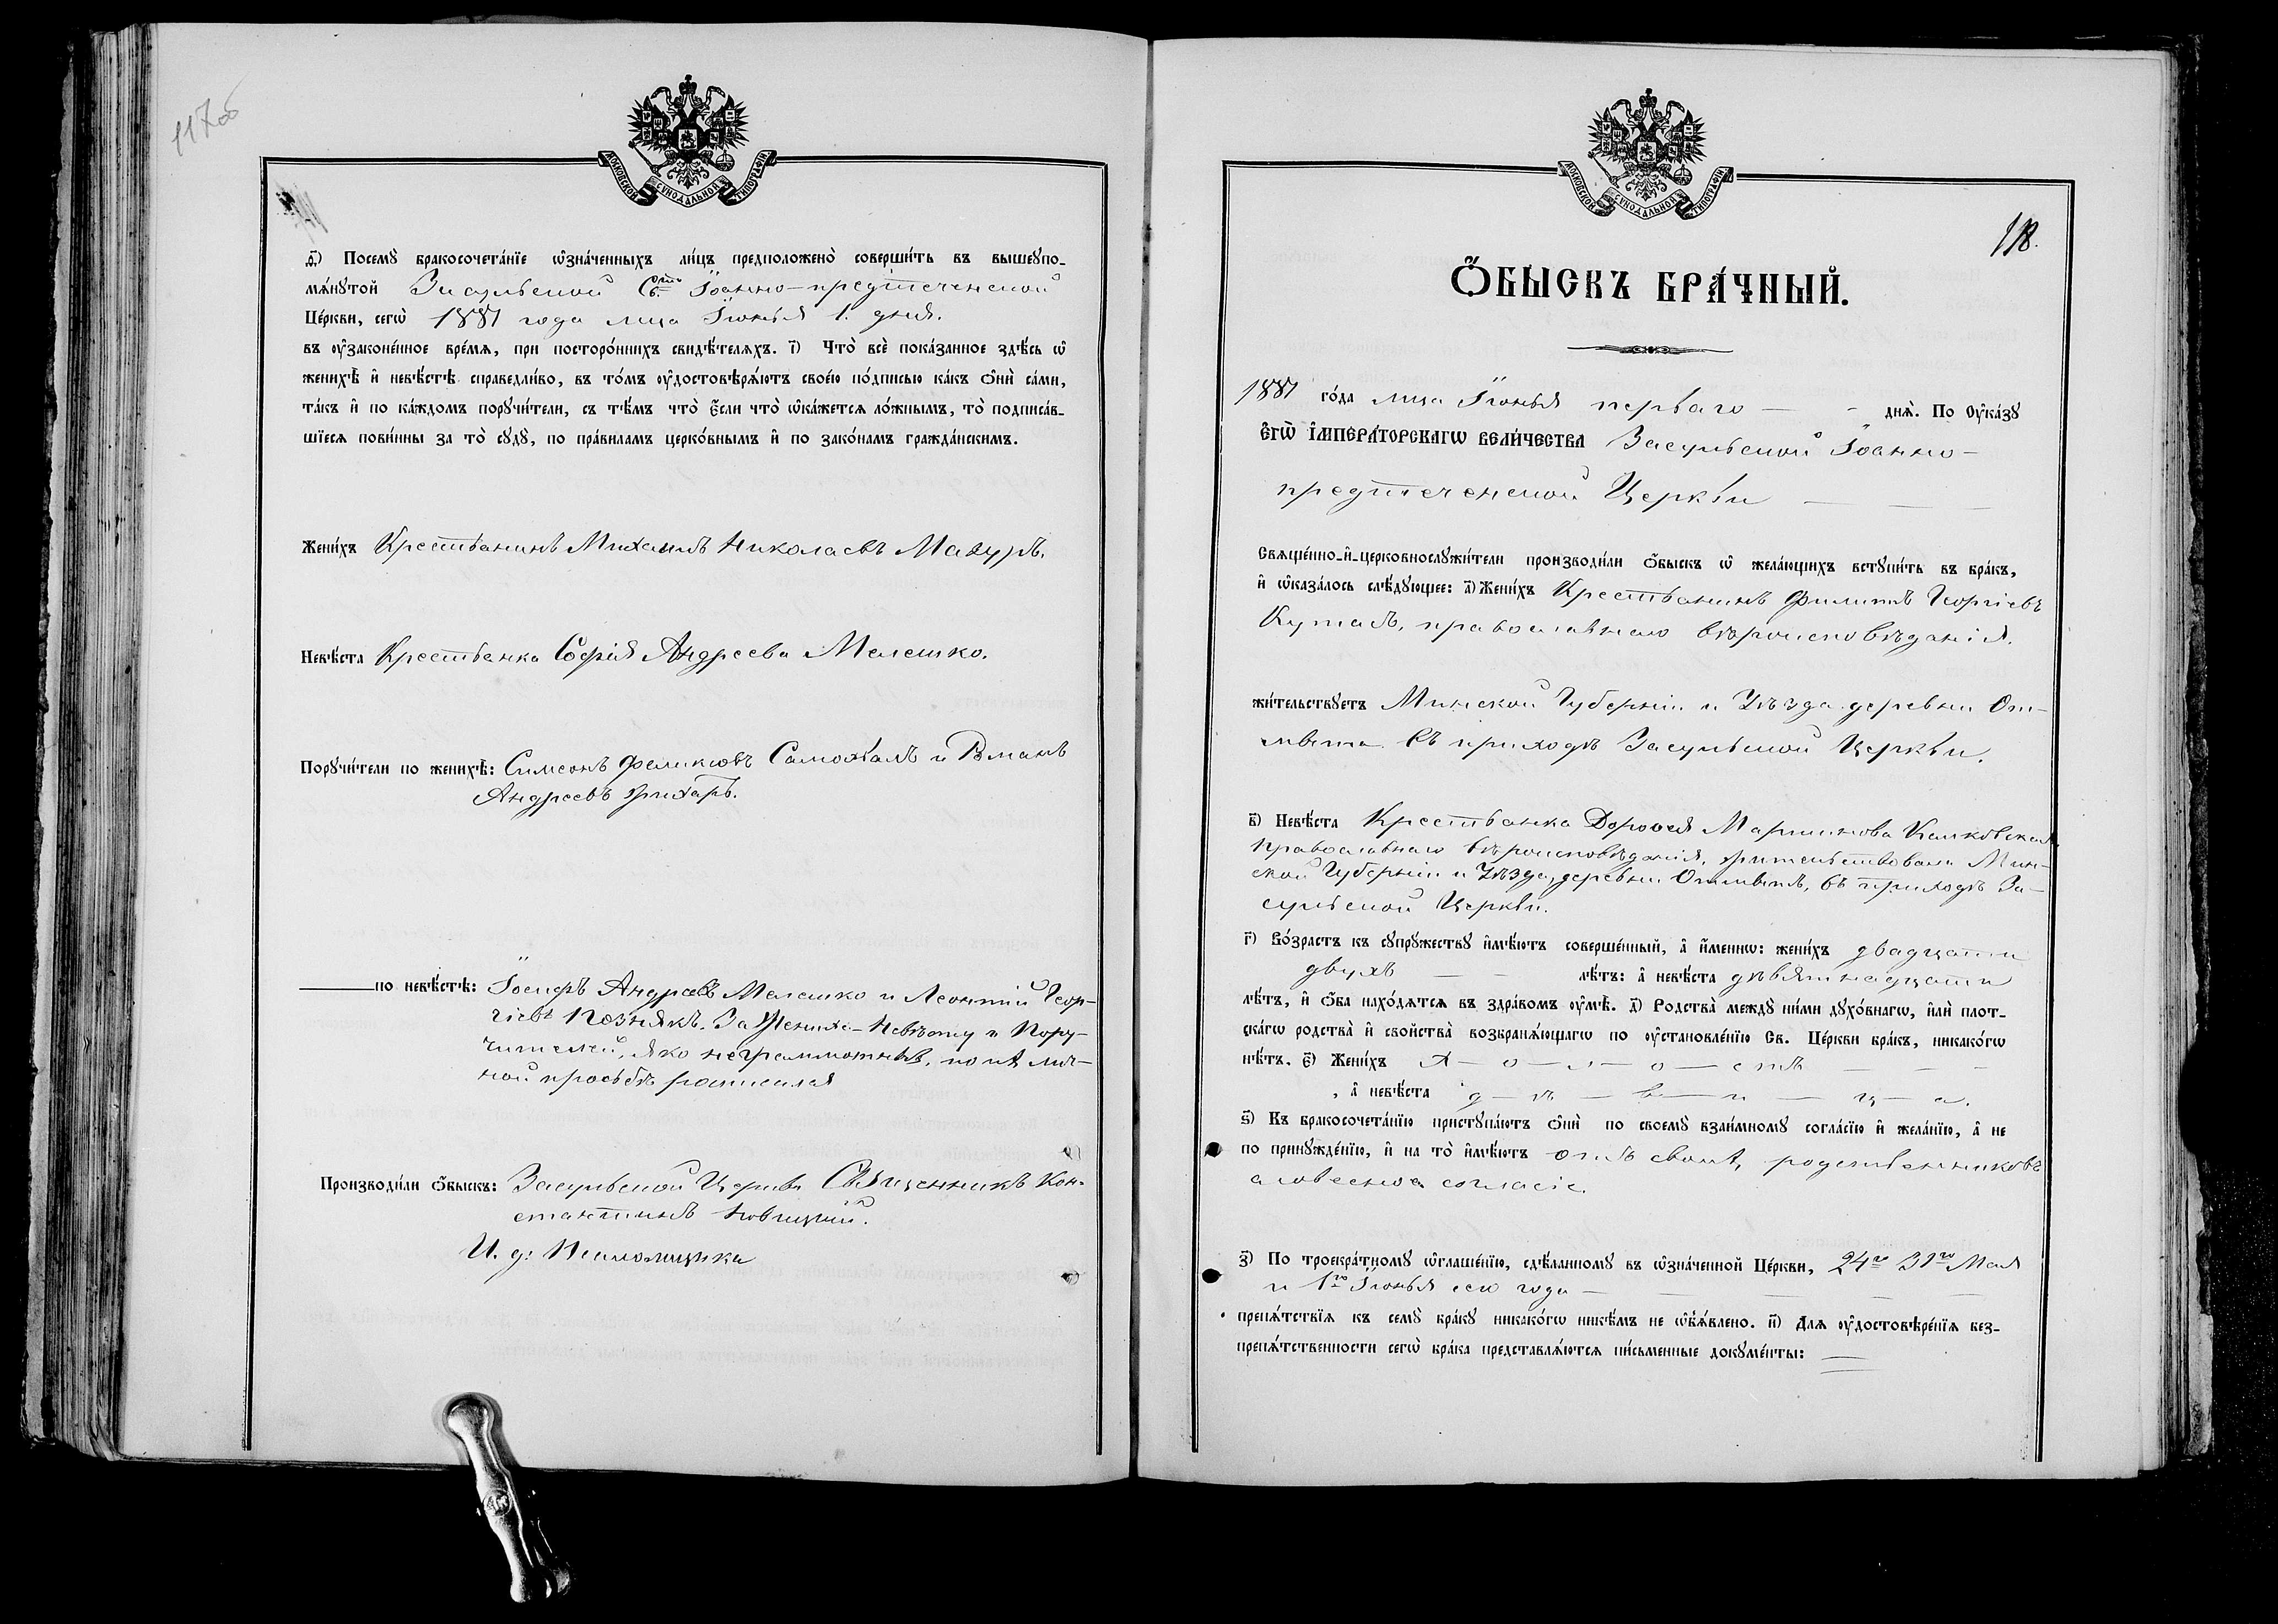 117об
МОСКОВСКОЙ СѴНОДАЛЬНОЙ ТИПОГРАФІИ
ѳ҃) Посемꙋ̀ бракосочета́нїе ѡ҆зна́ченныхъ ли́цъ предположено̀ соверши́ть въ вышеꙋпо-
мѧ́нꙋтой Засульской Свт. Іоанно-предтеченской
Це́ркви, сегѡ̀ 1881 года мца Іюнья 1. дня.
въ ᲂу҆законе́нное вре́мѧ, при посторо́ннихъ свидѣ́телѧхъ. і҃) Что̀ всѐ пока́занное здѣ́сь ѡ҆
женихѣ̀ и҆ невѣ́стѣ справедли́во, въ то́мъ ᲂу҆достовѣрѧ́ютъ свое́ю по́дписью ка́къ ѻ҆нѝ са́ми,
та́къ и҆ по ка́ждомъ порꙋчи́тели, съ тѣ́мъ что̀ є҆́сли что̀ ѡ҆ка́жетсѧ ло́жнымъ, то̀ подписа́в-
шїесѧ пови́нны за то̀ сꙋдꙋ̀, по пра́виламъ церко́внымъ и҆ по зако́намъ гражда́нскимъ.
Жени́хъ Крестьянинъ Михаилъ Николаевъ Мазуръ.
Невѣ́ста Крестьянка Софія Андреева Мелешко.
Порꙋчи́тели по женихѣ̀: Симеонъ Феликсовъ Самохвалъ и Романъ
Андреевъ Грихаръ.
по невѣ́стѣ: Іосифъ Андреевъ Мелешко и Леонтій Геор-
гіевъ Познякъ. За Жениха- Невѣсту и Пору-
чителей, яко неграмотныхъ, по ихъ лич-
ной просьбѣ росписался
Производи́ли ѻ҆́быскъ: Засульской Церкви Священникъ Кон-
стантинъ Новицкій.
И. д: Псаломщика
МОСКОВСКОЙ СѴНОДАЛЬНОЙ ТИПОГРАФІИ
118.
Ѻ҆́БЫСКЪ БРА́ЧНЫЙ.
1881 го́да мца Іюнья перваго — - днѧ̀. По ᲂу҆ка́зꙋ
Є҆ГѠ̀ І҆МПЕРА́ТОРСКАГѠ ВЕЛИ́ЧЕСТВА Засульской Іоанно-
предтеченской Церкви — — —
Свѧще́нно-и҆-церковнослꙋжи́тели производи́ли ѻ҆́быскъ ѡ҆ жела́ющихъ встꙋпи́ть въ бра́къ,
и҆ ѡ҆каза́лось слѣ́дꙋющее: а҃) Жени́хъ Крестьянинъ Филиппъ Георгіевъ
Купалъ, православнаго вѣроисповѣданія.
жи́тельствꙋетъ Минской Губерніи и Уѣзда деревни От-
мвита въ приходѣ Засульской Церкви.
в҃) Невѣ́ста Крестьянка Дороѳея Мартинова Калковская
православнаго вѣроисповѣданія, жительствовала Мин-
ской Губерніи и Уѣзда, деревни Отмвитѣ, въ приходѣ За-
сульской Церкви.
г҃) Во́зрастъ къ сꙋпрꙋ́жествꙋ и҆мѣ́ютъ соверше́нный, а҆ и҆́меннѡ: жени́хъ двадцати
двухъ — - лѣ́тъ: а҆ невѣ́ста дѣвятнадцати
лѣ́тъ, и҆ ѻ҆́ба нахо́дѧтсѧ въ здра́вомъ ᲂу҆мѣ̀. д҃) Родства̀ междꙋ̀ ни́ми дꙋхо́внагѡ, и҆лѝ плот-
ска́гѡ родства̀ и҆ сво́йства возбранѧ́ющагѡ по ᲂу҆становле́нїю Св. Це́ркви бра́къ, никако́гѡ
нѣ́тъ. є҃) Жени́хъ х — о — л — о — стъ — — -
, а҆ невѣ́ста д — ѣ — в — и — ц — а.
ѕ҃) Къ бракосочета́нїю пристꙋпа́ютъ ѻ҆нѝ по своемꙋ̀ взаи́мномꙋ согла́сїю и҆ жела́нїю, а҆ не
по принꙋжде́нїю, и҆ на то̀ и҆мѣ́ютъ отъ своихъ родственниковъ
словесное согласіе.
з҃) По троекра́тномꙋ ѡ҆глаше́нїю, сдѣ́ланномꙋ въ ѡ҆зна́ченной Це́ркви, 24го 31го Мая
и 1го Іюнья сего года — — — — —
препѧ́тствїѧ къ семꙋ̀ бра́кꙋ никако́гѡ никѣ́мъ не ѡ҆б̾ѧ́влено. и҃) Длѧ ᲂу҆достовѣре́нїѧ без-
препѧ́тственности сегѡ̀ бра́ка представлѧ́ютсѧ пи́сьменные докꙋме́нты: —